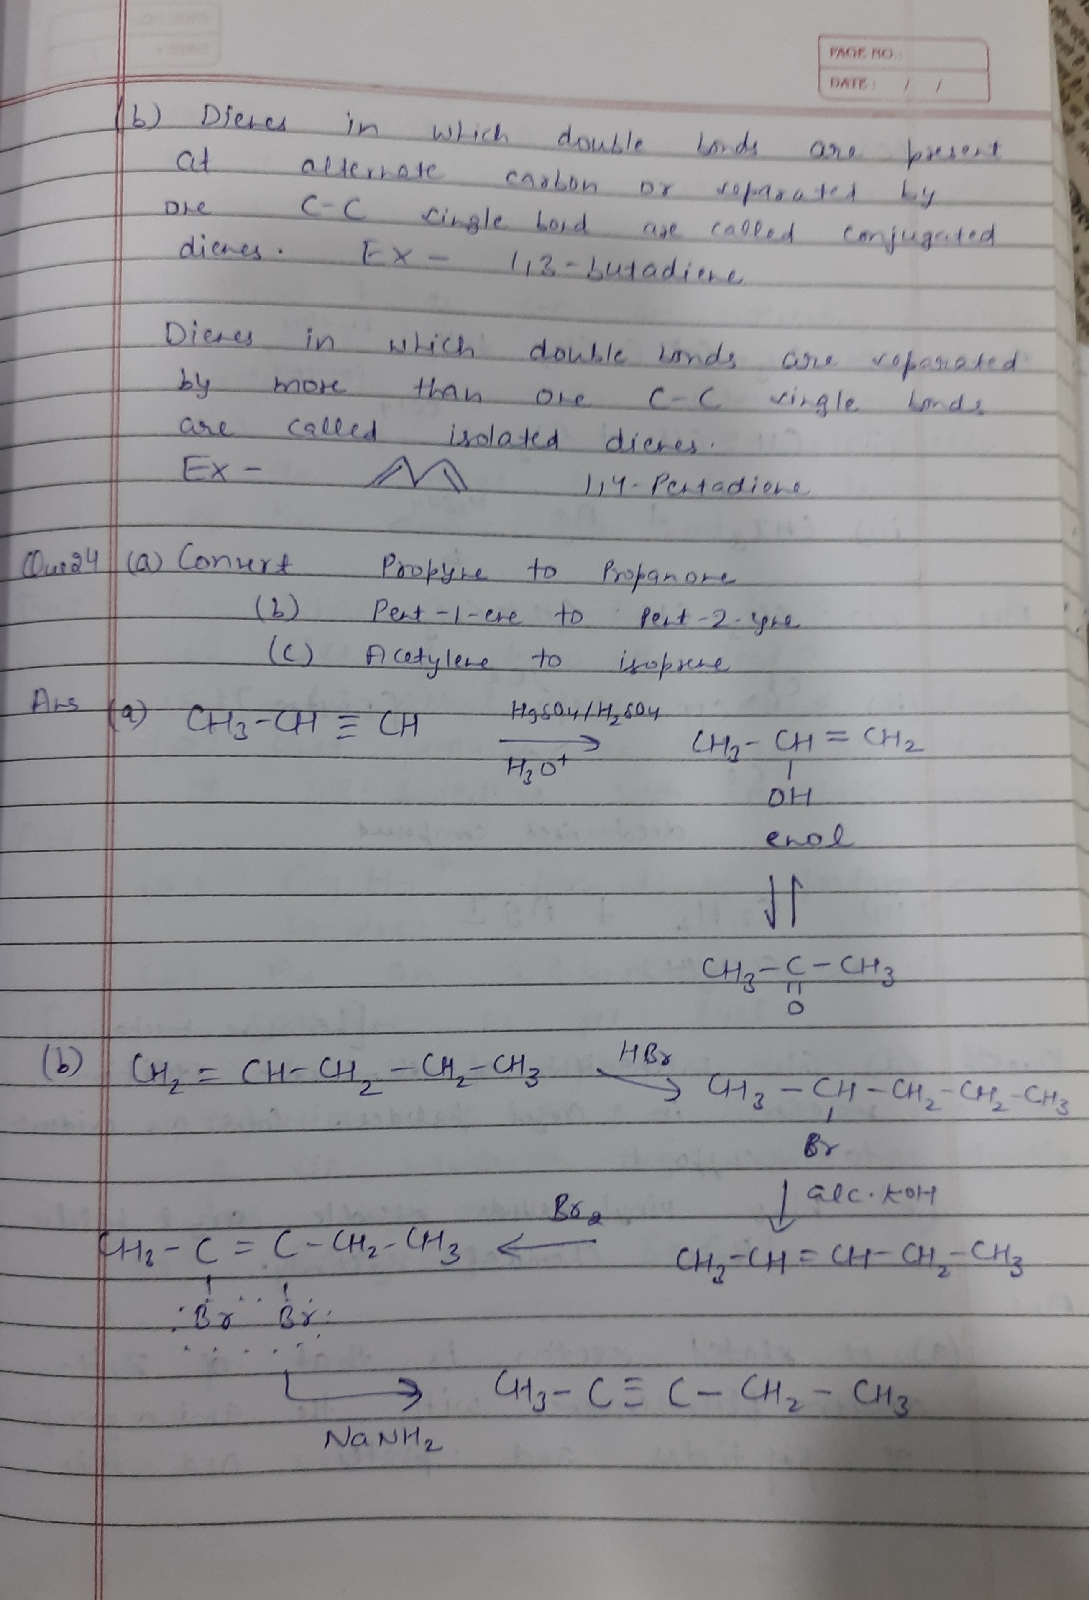 PAGE NO.:
DATE: / /
(b) Dienes in which double bonds are present
at alternate carbon or separated by
one C-C single bond are called conjugated
dienes. Ex - 1,3-butadiene
Dienes in which double bonds are separated
by more than one C-C single bonds
are called isolated dienes.
Ex - 1,4-Pentadiene
Que24 (a) Convert Propyne to Propanone
(b) Pent-1-ene to Pent-2-yne
(c) Acetylene to isoprene
Ans (a) CH3-CH≡CH HgSO4/H2SO4 CH3-CH=CH2
H3O+
OH
enol
⇌
CH3-C-CH3
O
(b) CH2=CH-CH2-CH2-CH3 HBr CH3-CH-CH2-CH2-CH3
Br
alc. KOH
CH3-C=C-CH2-CH3 Br2 CH3-CH=CH-CH2-CH3
Br Br
CH3-C≡C-CH2-CH3
NaNH2